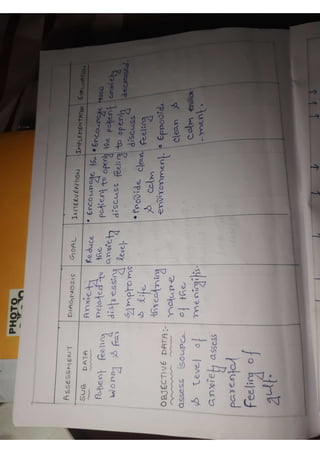 PHOTO
ASSESSMENT
SUB DATA
Patient Feeling
Worry & Fear
OBJECTIVE DATA:-
assess source
& level of
anxiety assess
parental
Feeling of
gult.
DIAGNOSIS
Anxiety
related to
distressing
symptoms
& life
threatning
nature
of the
meningitis.
GOAL
Reduce
the
anxiety
level
INTERVENTION
• Encourage the
patient to openly
discuss feeling
• Provide clean
& calm
environment.
IMPLEMENTATION
• Encourage
the patient
to openly
discuss
Feeling
• Provid.
clean &
calm enviro
-ment.
EVALUATION
anxiety
decreased.